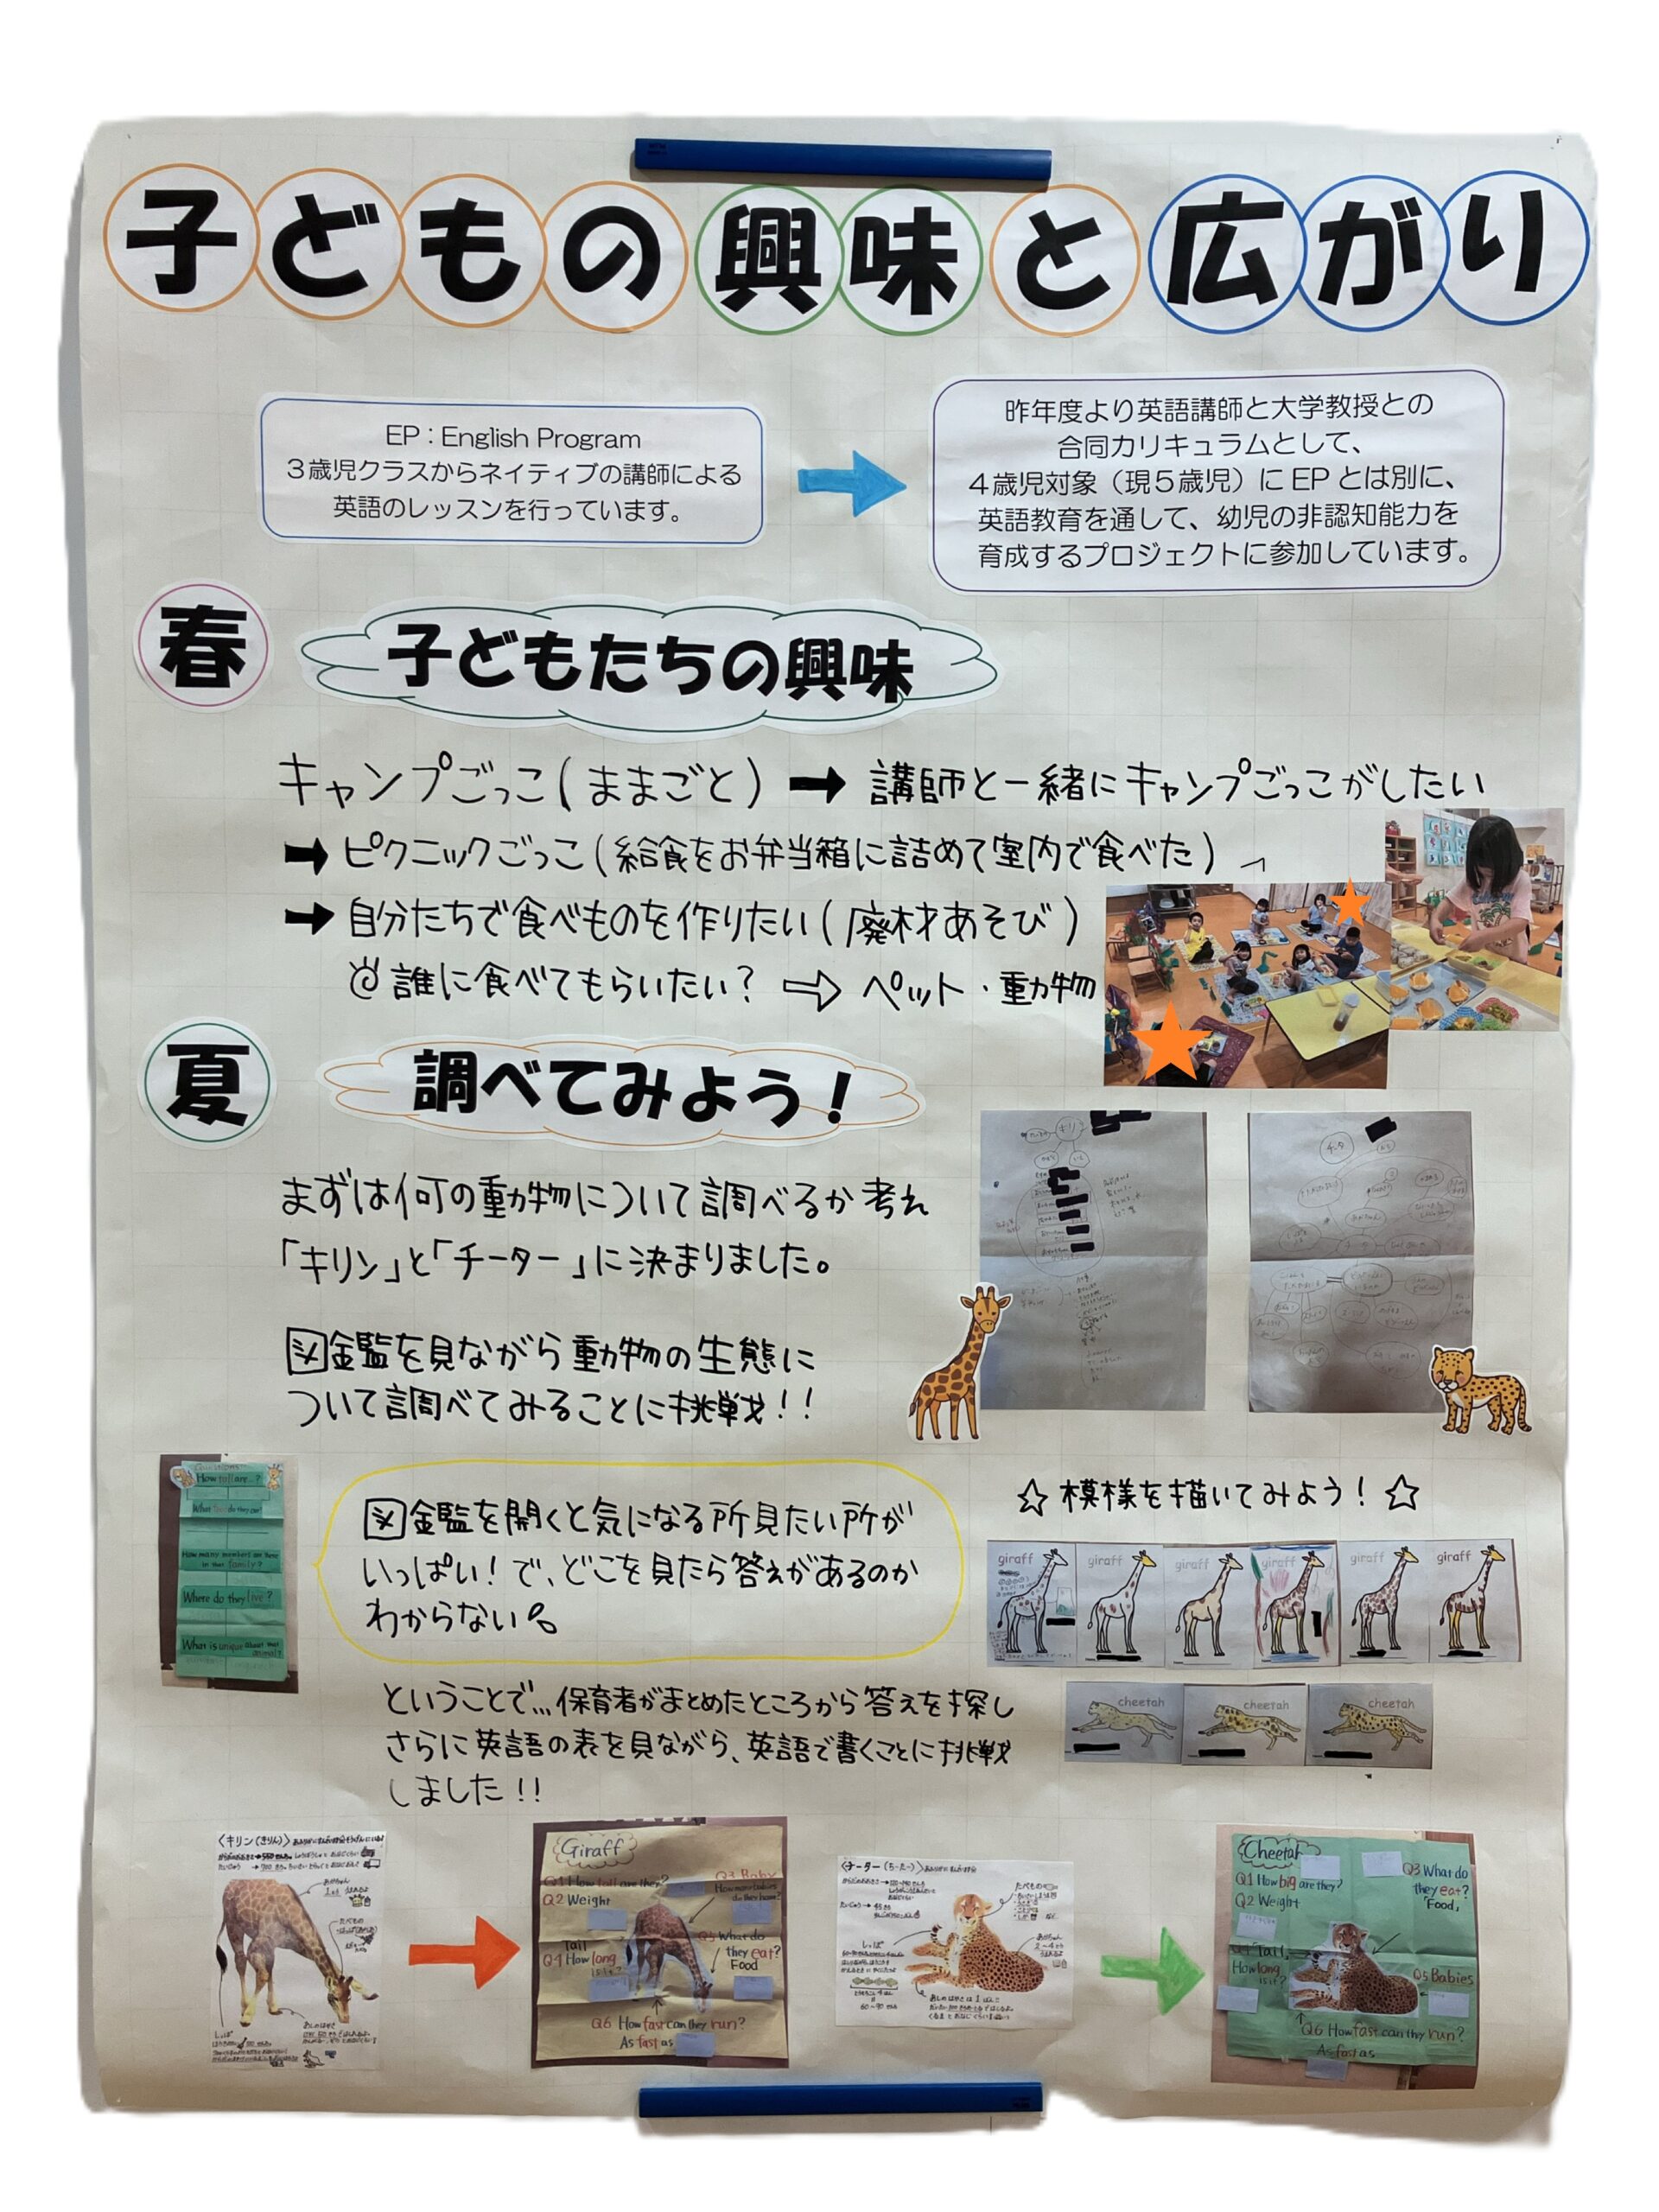 子どもの興味と広がり
EP：English Program
３歳児クラスからネイティブの講師による
英語のレッスンを行っています。
昨年度より英語講師と大学教授との
合同カリキュラムとして、
４歳児対象（現５歳児）にEPとは別に、
英語教育を通して、幼児の非認知能力を
育成するプロジェクトに参加しています。
春
子どもたちの興味
キャンプごっこ(ままごと)➡講師と一緒にキャンプごっこがしたい
➡ピクニックごっこ(給食をお弁当箱に詰めて室内で食べた)
➡自分たちで食べものを作りたい(廃材あそび)
誰に食べてもらいたい？⇨ペット・動物
夏
調べてみよう！
まずは何の動物について調べるか考え
「キリン」と「チーター」に決まりました。
図鑑を見ながら動物の生態に
ついて調べてみることに挑戦!!
How tall are...?
What do they eat?
How many members are there
in their family?
Where do they live?
What is unique about that
animal?
図鑑を開くと気になる所見たい所が
いっぱい！で、どこを見たら答えがあるのか
わからない
☆模様を描いてみよう！☆
giraff
giraff
giraff
giraff
giraff
giraff
cheetah
cheetah
cheetah
ということで...保育者がまとめたところから答えを探し
さらに英語の表を見ながら、英語で書くことに挑戦
しました!!
〈キリン(きりん)〉
あかちゃん
たべもの
しっぽ
あしのはやさ
Giraff
Q1 How tall are they?
Q2 Weight
Q3 Baby
How many babies
do they have?
Q4 Tail
How long
is it?
Q5 What do
they eat?
Food
Q6 How fast can they run?
As fast as
〈チーター(ちーたー)〉
たべもの
しっぽ
あかちゃん
60〜90せんち
Cheetah
Q1 How big are they?
Q2 Weight
Q3 What do
they eat?
Food,
Q4 Tail,
How long
is it?
Q5 Babies
Q6 How fast can they run?
As fast as